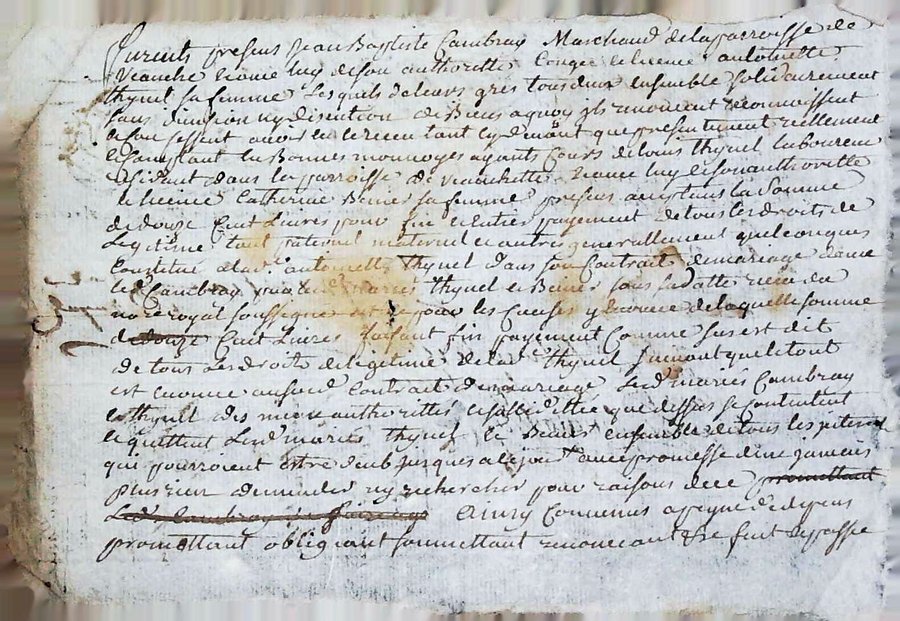 Furent presens Jean Baptiste Cambray Marchand de la parroisse de
Veauche et avec luy de son authorité congé et licence antoinette
thynel sa femme Lesquels de leurs gres tous deux ensemble solidairement
sans division ny discution de Biens a quoy ils renoncent reconnoissent
et confessent avoir eu et receu tant cy devant que presentement reellement
et contant en Bonnes monnoyes ayants cours de Louis thynel laboureur
residant dans la parroisse de veauchette et avec luy de son authorité
et licence Catherine sa femme presens acceptans la somme
de douze Cent Livres pour fin et entier payement de tous les droits de
Legitime tant paternel maternel et autres generallement quelconques
Constitué a lad. antoinette thynel dans son Contrait de mariage avec
led Cambray par lesd mariés thynel et sous sa datte receu du
no.re royal soussigne et pour les Causes y enoncé de laquelle somme
de douze Cent Livres faisant fin payement Comme sus est dit
de tous Les droits de legitime de lad thynel suivant que le tout
est enonce aususd. Contrait de mariage Lesd mariés Cambray
et thynel de mesme authorités et sollidittée que dessus se Contentent
et quittent Lesd mariés thynel et ensemble de tous les interest
qui pourroient estre deub jusques a ce jour avec promesse de ne jamais
plus rien demander ny rechercher pour raisons de ce promettant
Led Cambray Ainsy Convenus a peyne de depens
promettant obligeant soumettant renoncant &c fait et passé